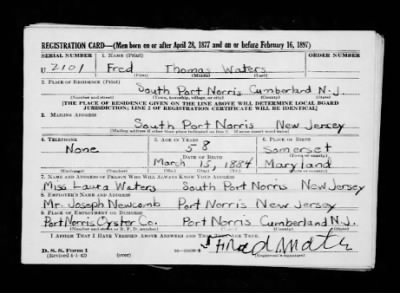 REGISTRATION CARD—(Men born on or after April 28, 1877 and on or before February 16, 1897)
SERIAL NUMBER 1. NAME (Print) ORDER NUMBER
U 2101 Fred Thomas Waters
(First) (Middle) (Last)
2. PLACE OF RESIDENCE (Print)
South Port Norris Cumberland N.J.
(Number and street) (Town, township, village, or city) (County) (State)
[THE PLACE OF RESIDENCE GIVEN ON THE LINE ABOVE WILL DETERMINE LOCAL BOARD
JURISDICTION; LINE 2 OF REGISTRATION CERTIFICATE WILL BE IDENTICAL]
3. MAILING ADDRESS
South Port Norris New Jersey
[Mailing address if other than place indicated on line 2. If same insert word same]
4. TELEPHONE 5. AGE IN YEARS 6. PLACE OF BIRTH
None 58 Somerset
DATE OF BIRTH
March 15, 1884 Maryland
7. NAME AND ADDRESS OF PERSON WHO WILL ALWAYS KNOW YOUR ADDRESS
Miss Laura Waters South Port Norris New Jersey
8. EMPLOYER'S NAME AND ADDRESS
Mr. Joseph Newcomb Port Norris New Jersey
9. PLACE OF EMPLOYMENT OR BUSINESS
Port Norris Oyster Co. Port Norris Cumberland N.J.
(Number and street or R. F. D. number) (Town) (County) (State)
I AFFIRM THAT I HAVE VERIFIED ABOVE ANSWERS AND THAT THEY ARE TRUE.
D. S. S. Form 1
(Revised 4-1-42) (over) (Registrant's signature)